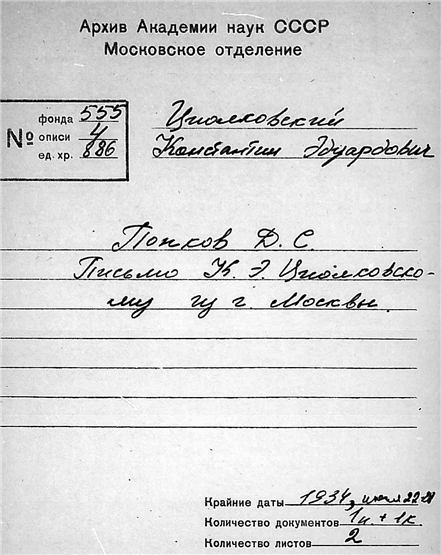 Архив Академии наук СССР
Московское отделение
№
фонда 555
описи 4
ед. хр. 886
Циолковский
Константин Эдуардович
Попков Д. С.
Письмо К. Э. Циолковско-
му из г. Москвы.
Крайние даты 1934,
Количество документов 1п. + 1к.
Количество листов 2